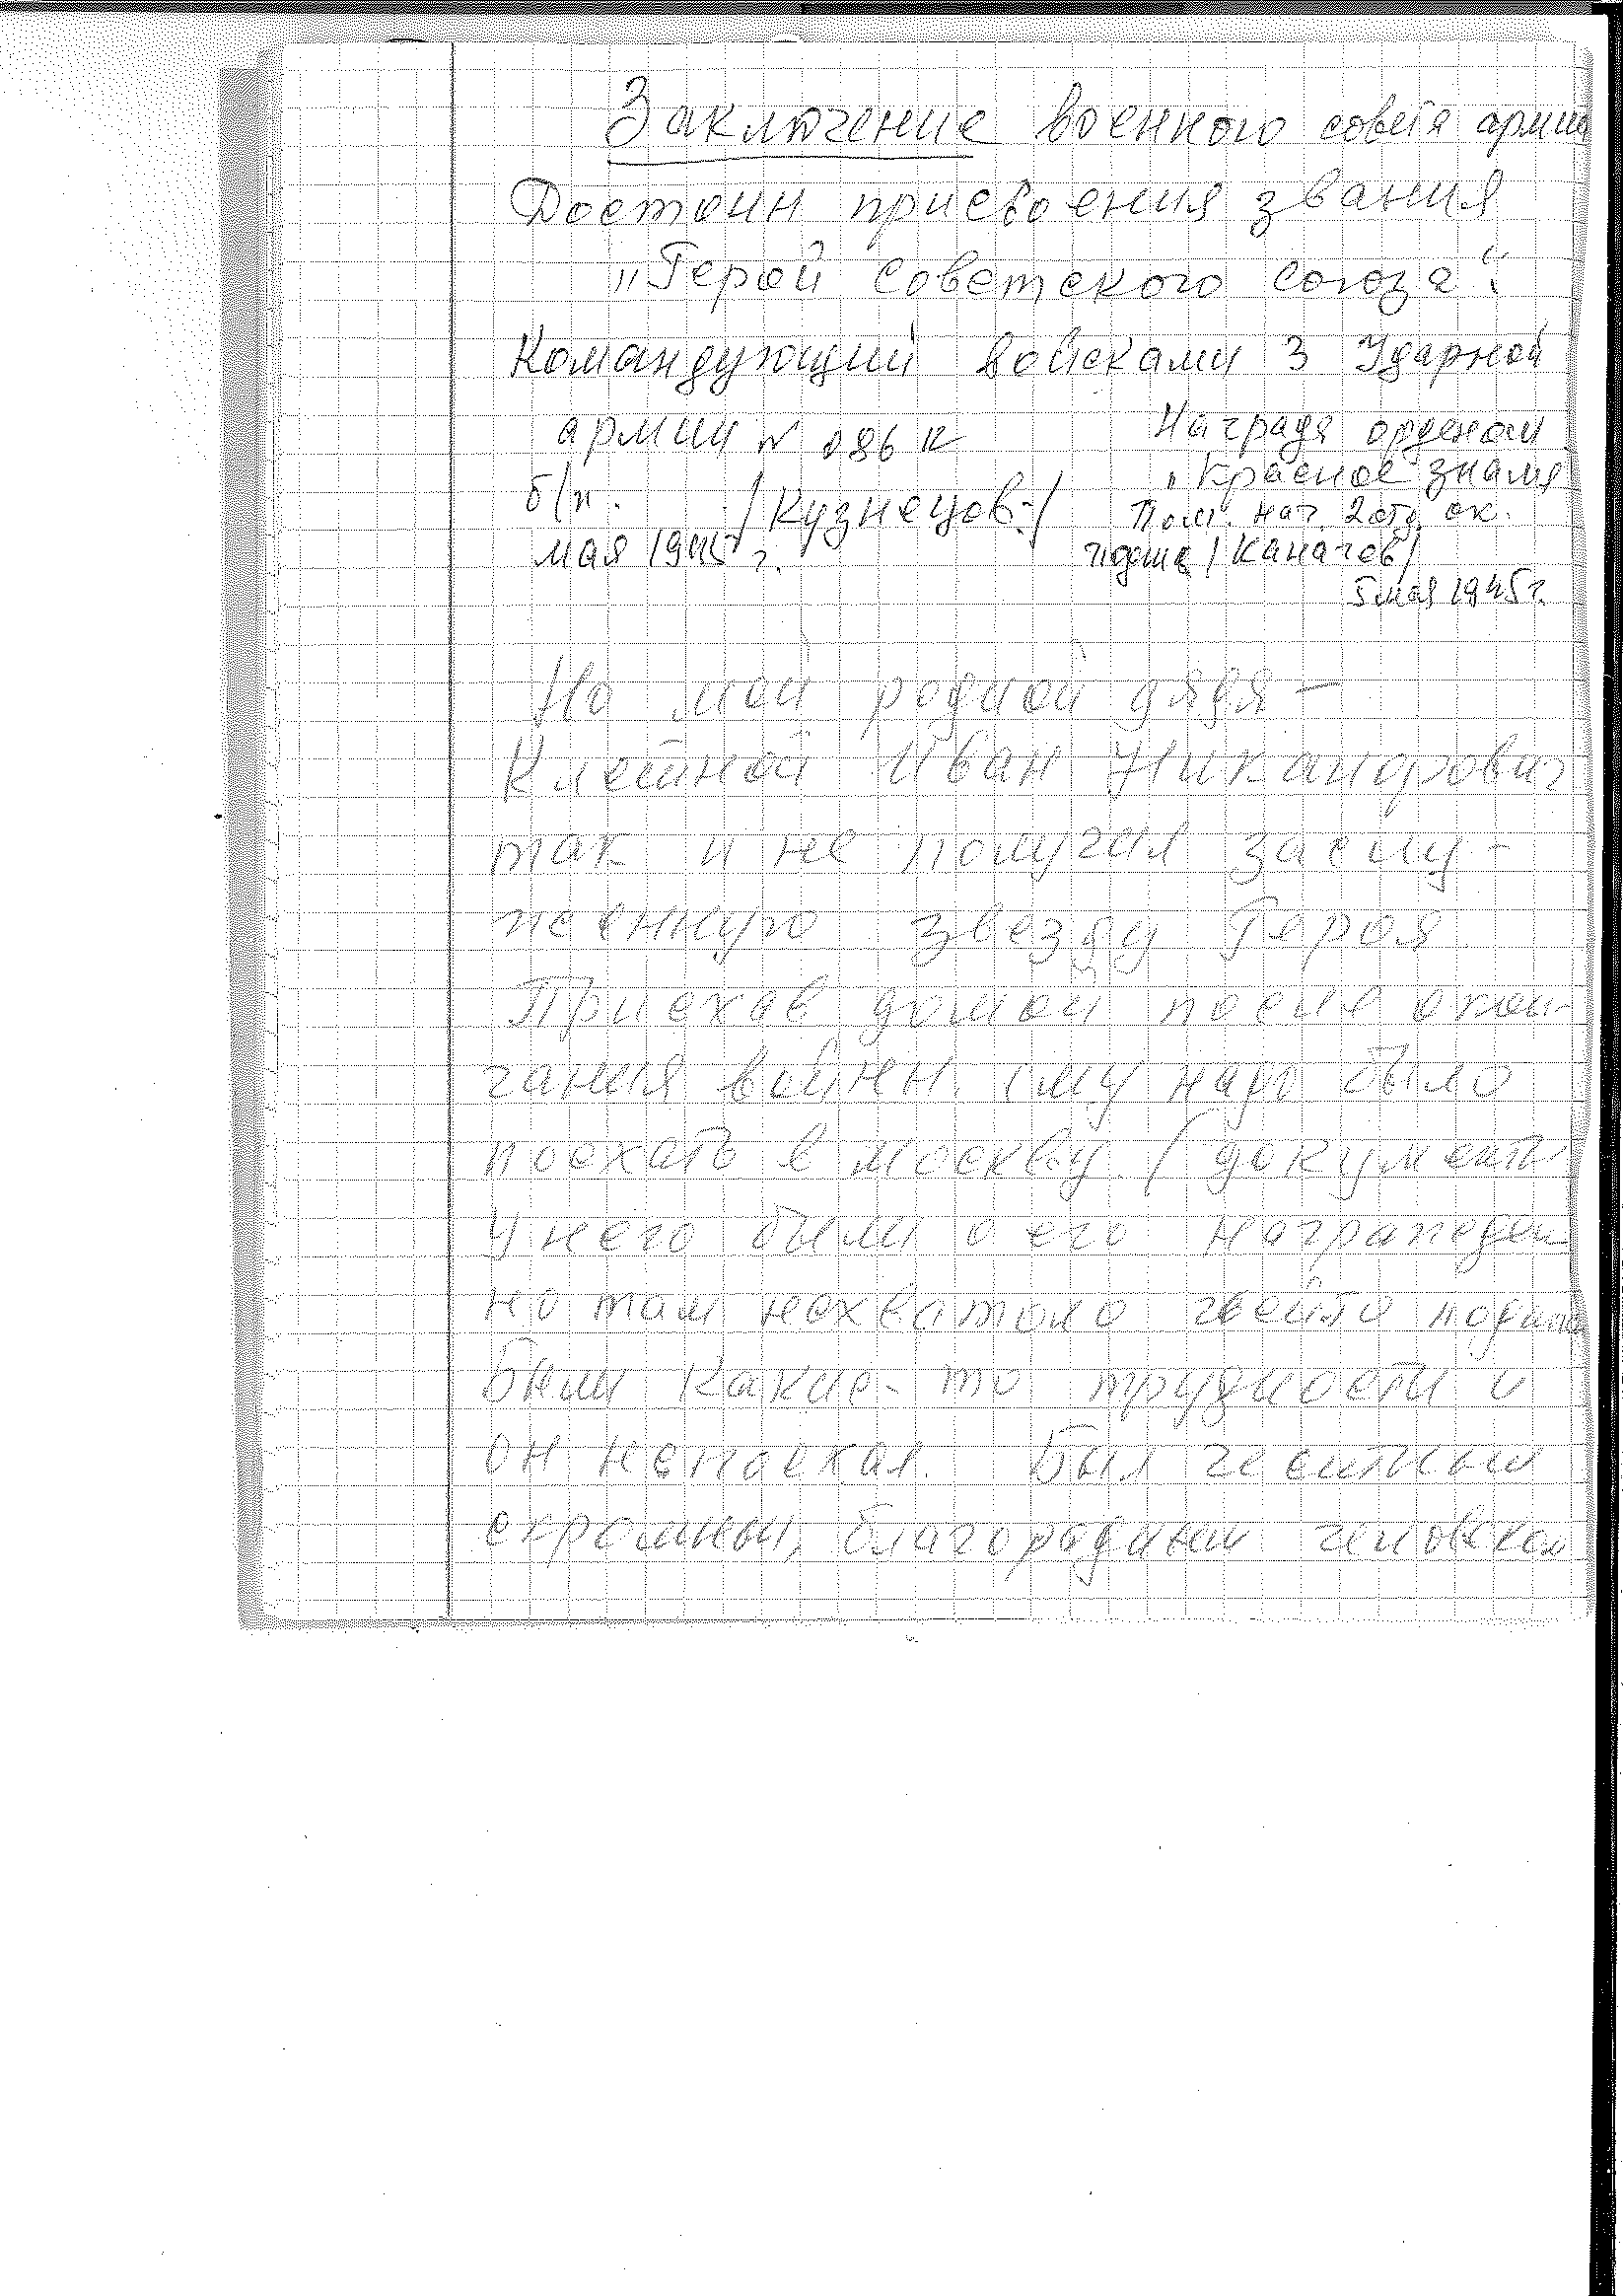 Заключение военного совета армии
Достоин присвоения звания
„Герой Советского Союза“.
Командующий войсками 3 Ударной
армии № 086 к
Награда орденом
„Красное знамя
б/п. /Кузнецов:/
Пом. нач. 2 отд. ок.
мая 1945 г.
/Каначев/
5 мая 1945 г.
Но мой родной дядя –
Клейной Иван Никандрович
так и не получил заслу-
женную звезду Героя
Приехав домой после окон-
чания войны. ему надо было
поехать в москву. /документы
у него были о его награжден
но там нехватало чьей-то подписи
Были какие-то трудности и
он непоехал. Был честным
скромным, благородным человеком